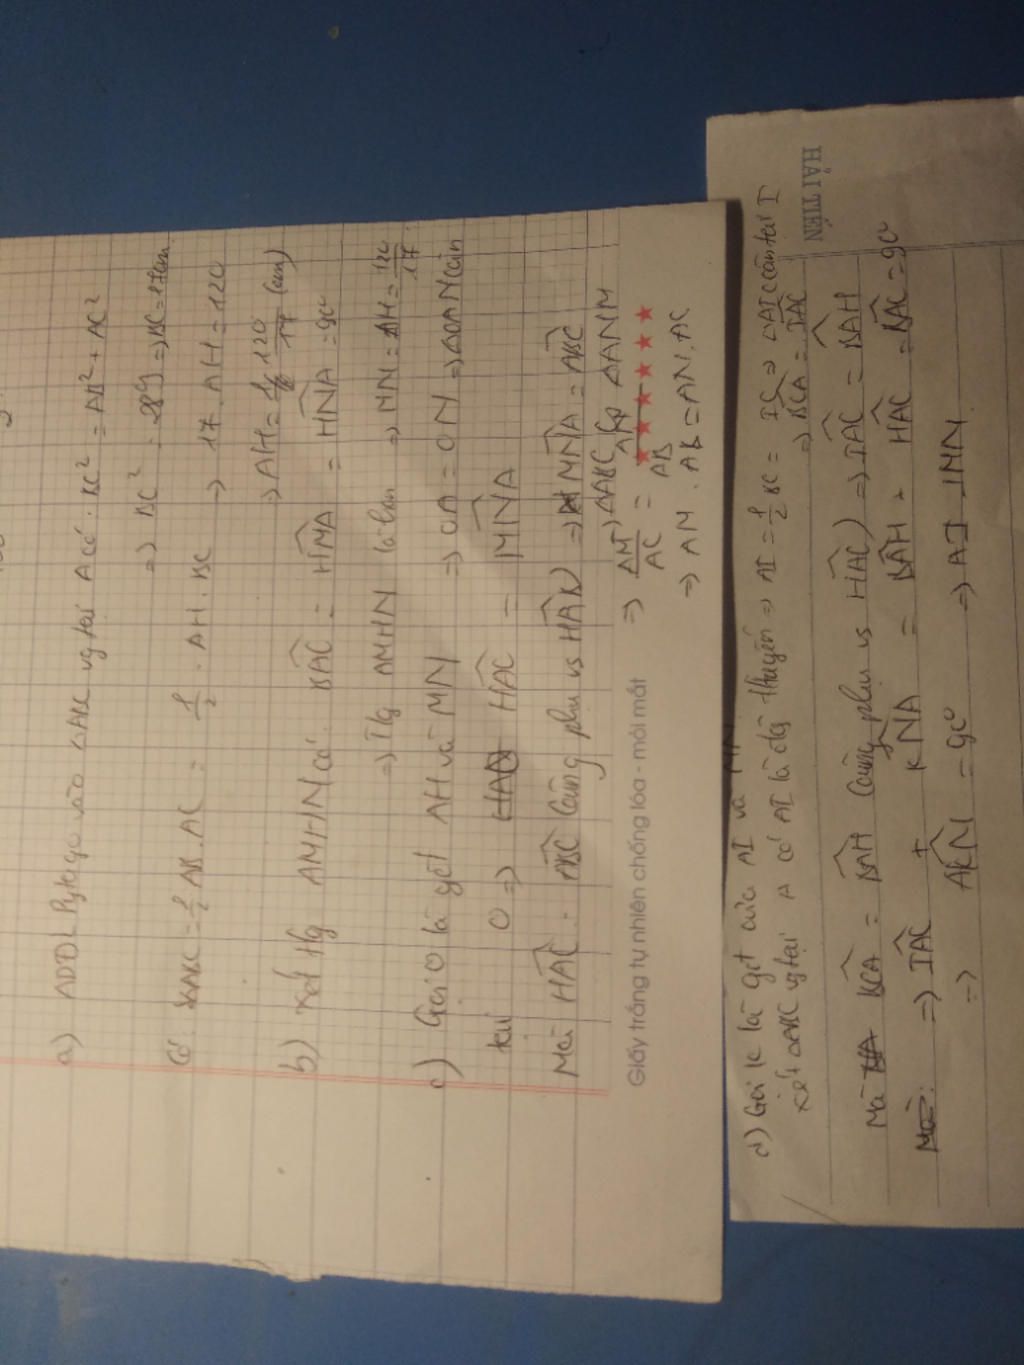 a) ADĐL Pytago vào ΔABC vg tại A có: BC² = AB² + AC²
=> BC² = 289 => BC = 17cm
Có SABC = 1/2 AB.AC = 1/2 . AH.BC -> 17.AH = 120
=> AH = 120/17 (cm)
b) Xét tứg AMHN có: BAC = HMA = HNA = 90°
=> Tứg AMHN là hcn => MN = AH = 120/17
c) Gọi O là gđ AH và MN => OA = ON => ΔOAN cân
tại O => HAC = MNA
Mà HAC = ABC (cùng phụ vs HAB) => MNA = ABC
=> ΔABC ΔANM
=> AM/AC = AN/AB
=> AM.AB = AN.AC
Giấy trắng tự nhiên chống lóa - mỏi mắt
d) Gọi K là gđ của AI và MN
xét ΔABC vg tại A có AI là đg tr tuyến => AI = 1/2 BC = IC => ΔAIC cân tại I
=> BCA = IAC
Mà BCA = BAH (cùng phụ vs HAC) => IAC = BAH
=> IAC + KNA = BAH + HAC = BAC = 90°
=> AKN = 90° => AI ⊥ MN
HẢI TIẾN